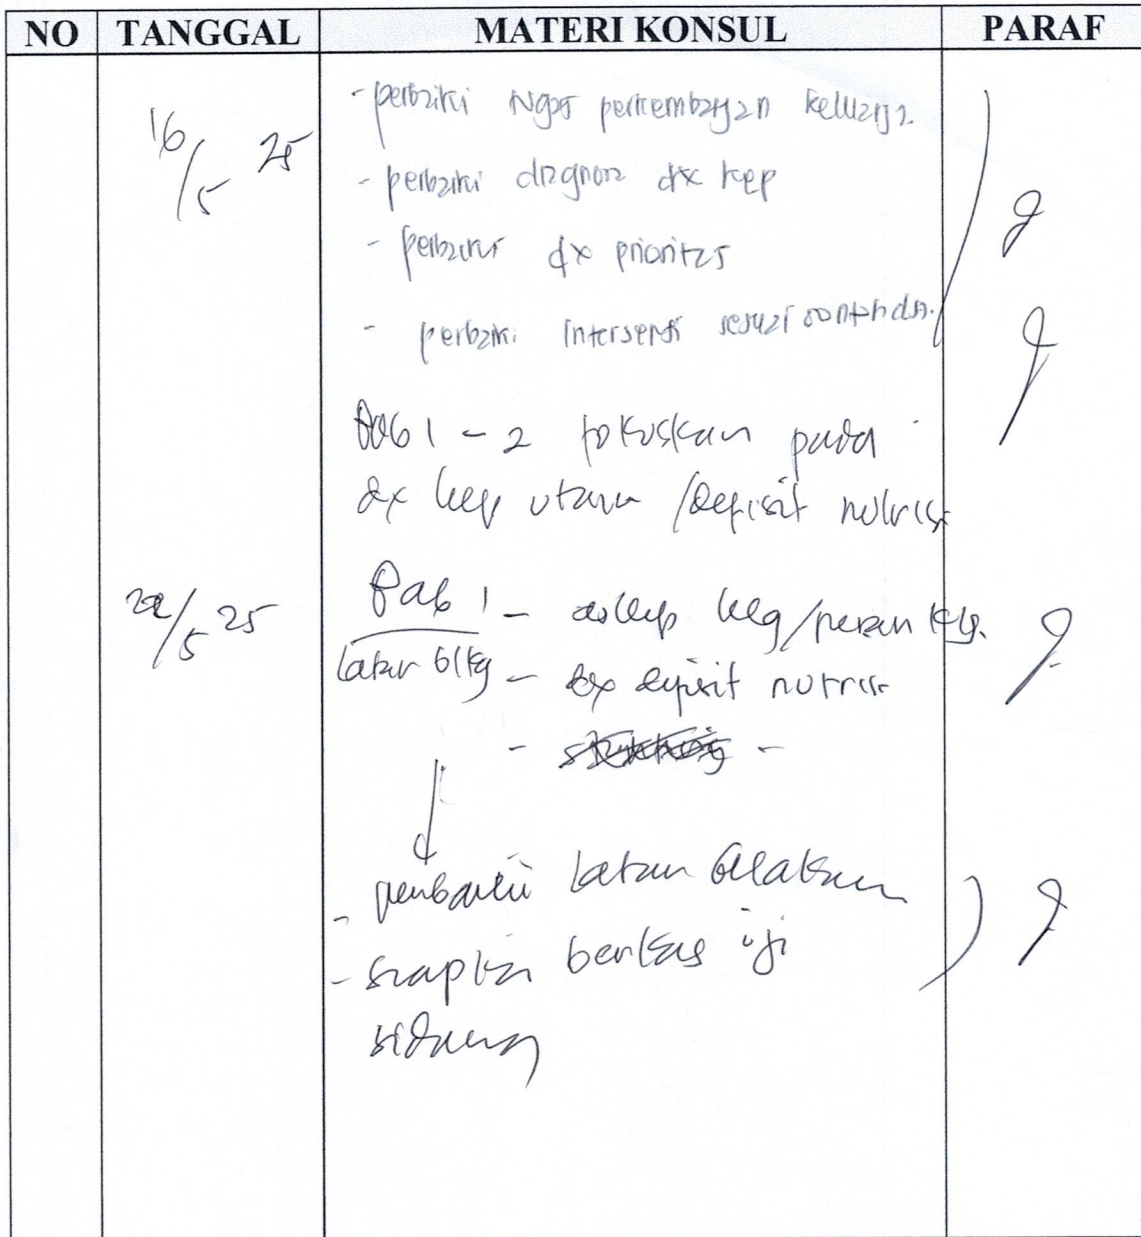 NO TANGGAL MATERI KONSUL PARAF
16/5 25
- perbaiki tugas perkembangan keluarga
- perbaiki diagnosa dx kep
- perbaiki dx prioritas
- perbaiki intervensi sesuai
Bab 1 - 2 fokuskan pada
dx kep utama / defisit nutrisi
22/5 25
Bab 1 - askep klg/peran klg.
Latar blkg - dx defisit nutrisi
- perbaiki latar belakang
- siapkan berkas uji
sidang